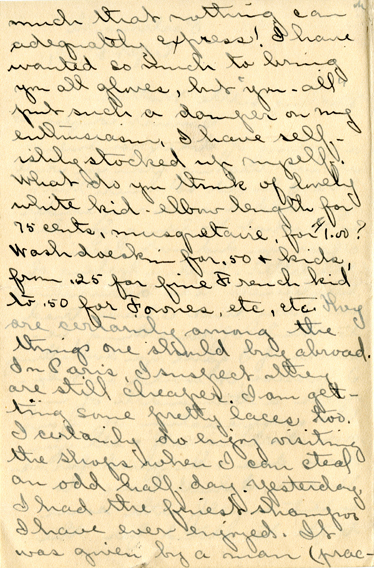 much that nothing can
adequately express! I have
wanted so much to bring
you all gloves, but "you-all"
put such a damper on my
enthusiasm, I have self-
ishly stocked up myself.
What do you think of lovely
white kid - elbow length for
75 cents, musquetaire, for $1.00?
Wash doeskin for .50 & kids,
from .25 for fine French kid
to .50 for Fownes, etc, etc. They
are certainly among the
things one should buy abroad.
In Paris, I suspect they
are still cheaper. I am get-
ting some pretty laces, too.
I certainly do enjoy visiting
the shops when I can steal
an odd half day. Yesterday
I had the finest shampoo
I have ever enjoyed. It
was given by a man (prac-